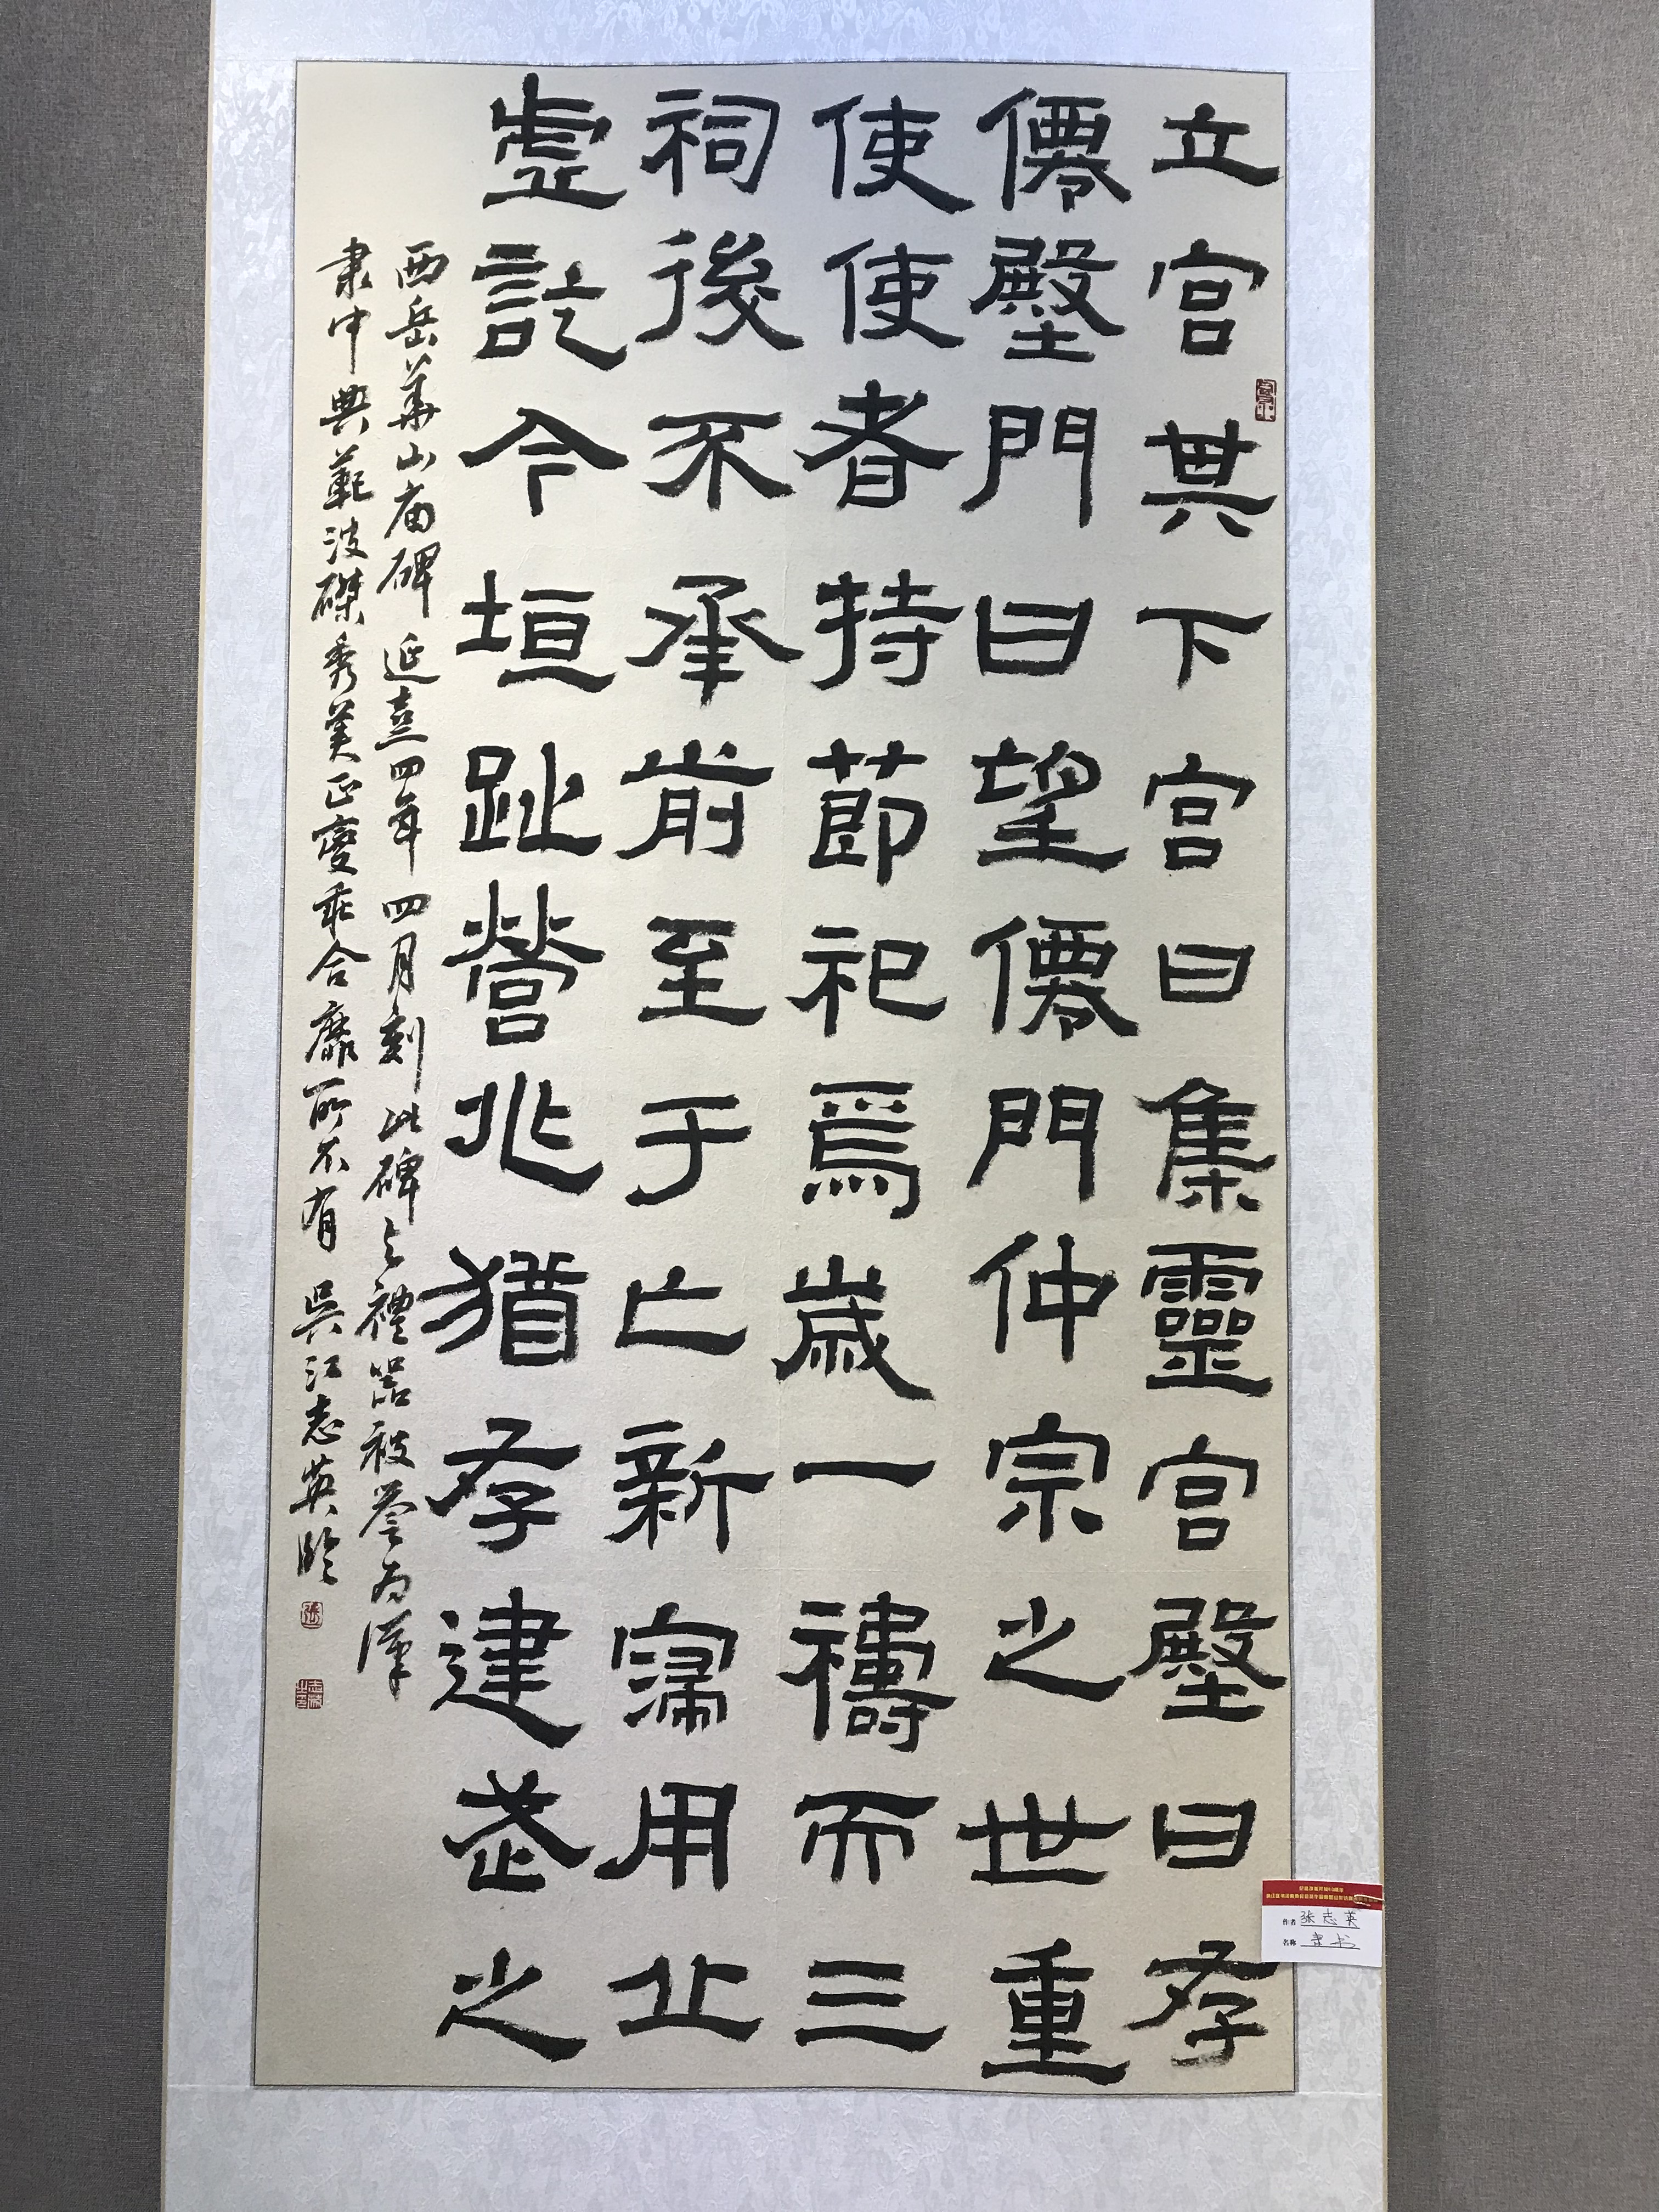 立宫其下宫曰集靈宫壂曰存
僊壂門曰望僊門仲宗之世重
使使者持節祀焉歲一禱而三
祠後不承前至于亡新寖用丘
虛訖今垣趾營兆猶存建武之
西岳華山庙碑延熹四年四月刻此碑与禮器被誉为漢
隶中典範波磔秀美正變乖合靡所不有 吳江志英臨
作者 张志英
名称 隶书